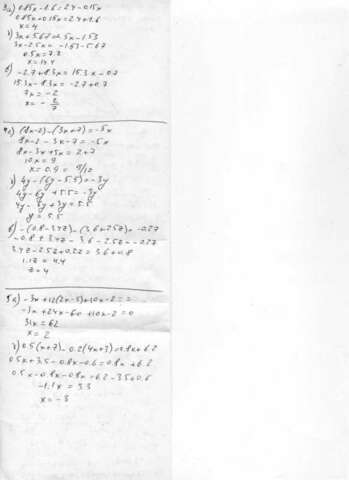 3а) 0.85x - 1.6 = 2.4 - 0.15x
0.85x + 0.15x = 2.4 + 1.6
x = 4
3x + 5.67 = 2.5x - 1.53
3x - 2.5x = -1.53 - 5.67
0.5x = 7.2
x = 14.4
в) -2.7 + 8.3x = 15.3x - 0.7
15.3x - 8.3x = -2.7 + 0.7
7x = -2
x = - 2/7
4а) (8x-2) - (3x+7) = -5x
8x - 2 - 3x - 7 = -5x
8x - 3x + 5x = 2 + 7
10x = 9
x = 0.9 = 9/10
4y - (6y - 5.5) = -3y
4y - 6y + 5.5 = -3y
4y - 6y + 3y = 5.5
y = 5.5
в) -(0.8 - 3.4z) - (3.6 + 2.5z) = -0.2z
-0.8 + 3.4z - 3.6 - 2.5z = -0.2z
3.4z - 2.5z + 0.2z = 3.6 + 0.8
1.1z = 4.4
z = 4
5а) -3x + 12(2x-5) + 10x - 2 =
-3x + 24x - 60 + 10x - 2 = 0
31x = 62
x = 2
0.5(x+7) - 0.2(4x+3) = 0.8x + 6.2
0.5x + 3.5 - 0.8x - 0.6 = 0.8x + 6.2
0.5x - 0.8x - 0.8x = 6.2 - 3.5 + 0.6
-1.1x = 3.3
x = -3